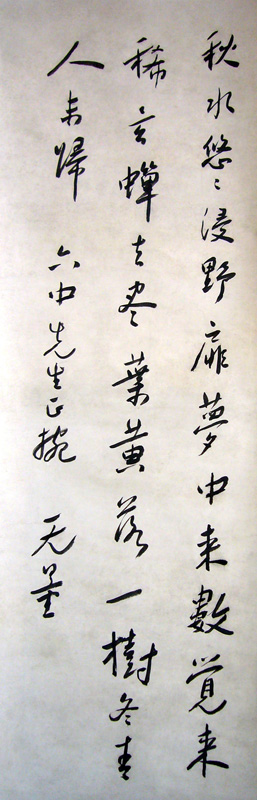 秋水悠〻浸野扉夢中来數覺来
稀玄蟬去尽葉黄落一樹冬青
人未歸 六中先生正捥 无量